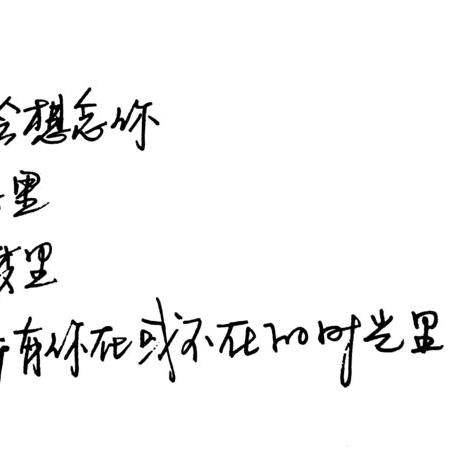 会想念你
里
里
有你在或不在的时光里